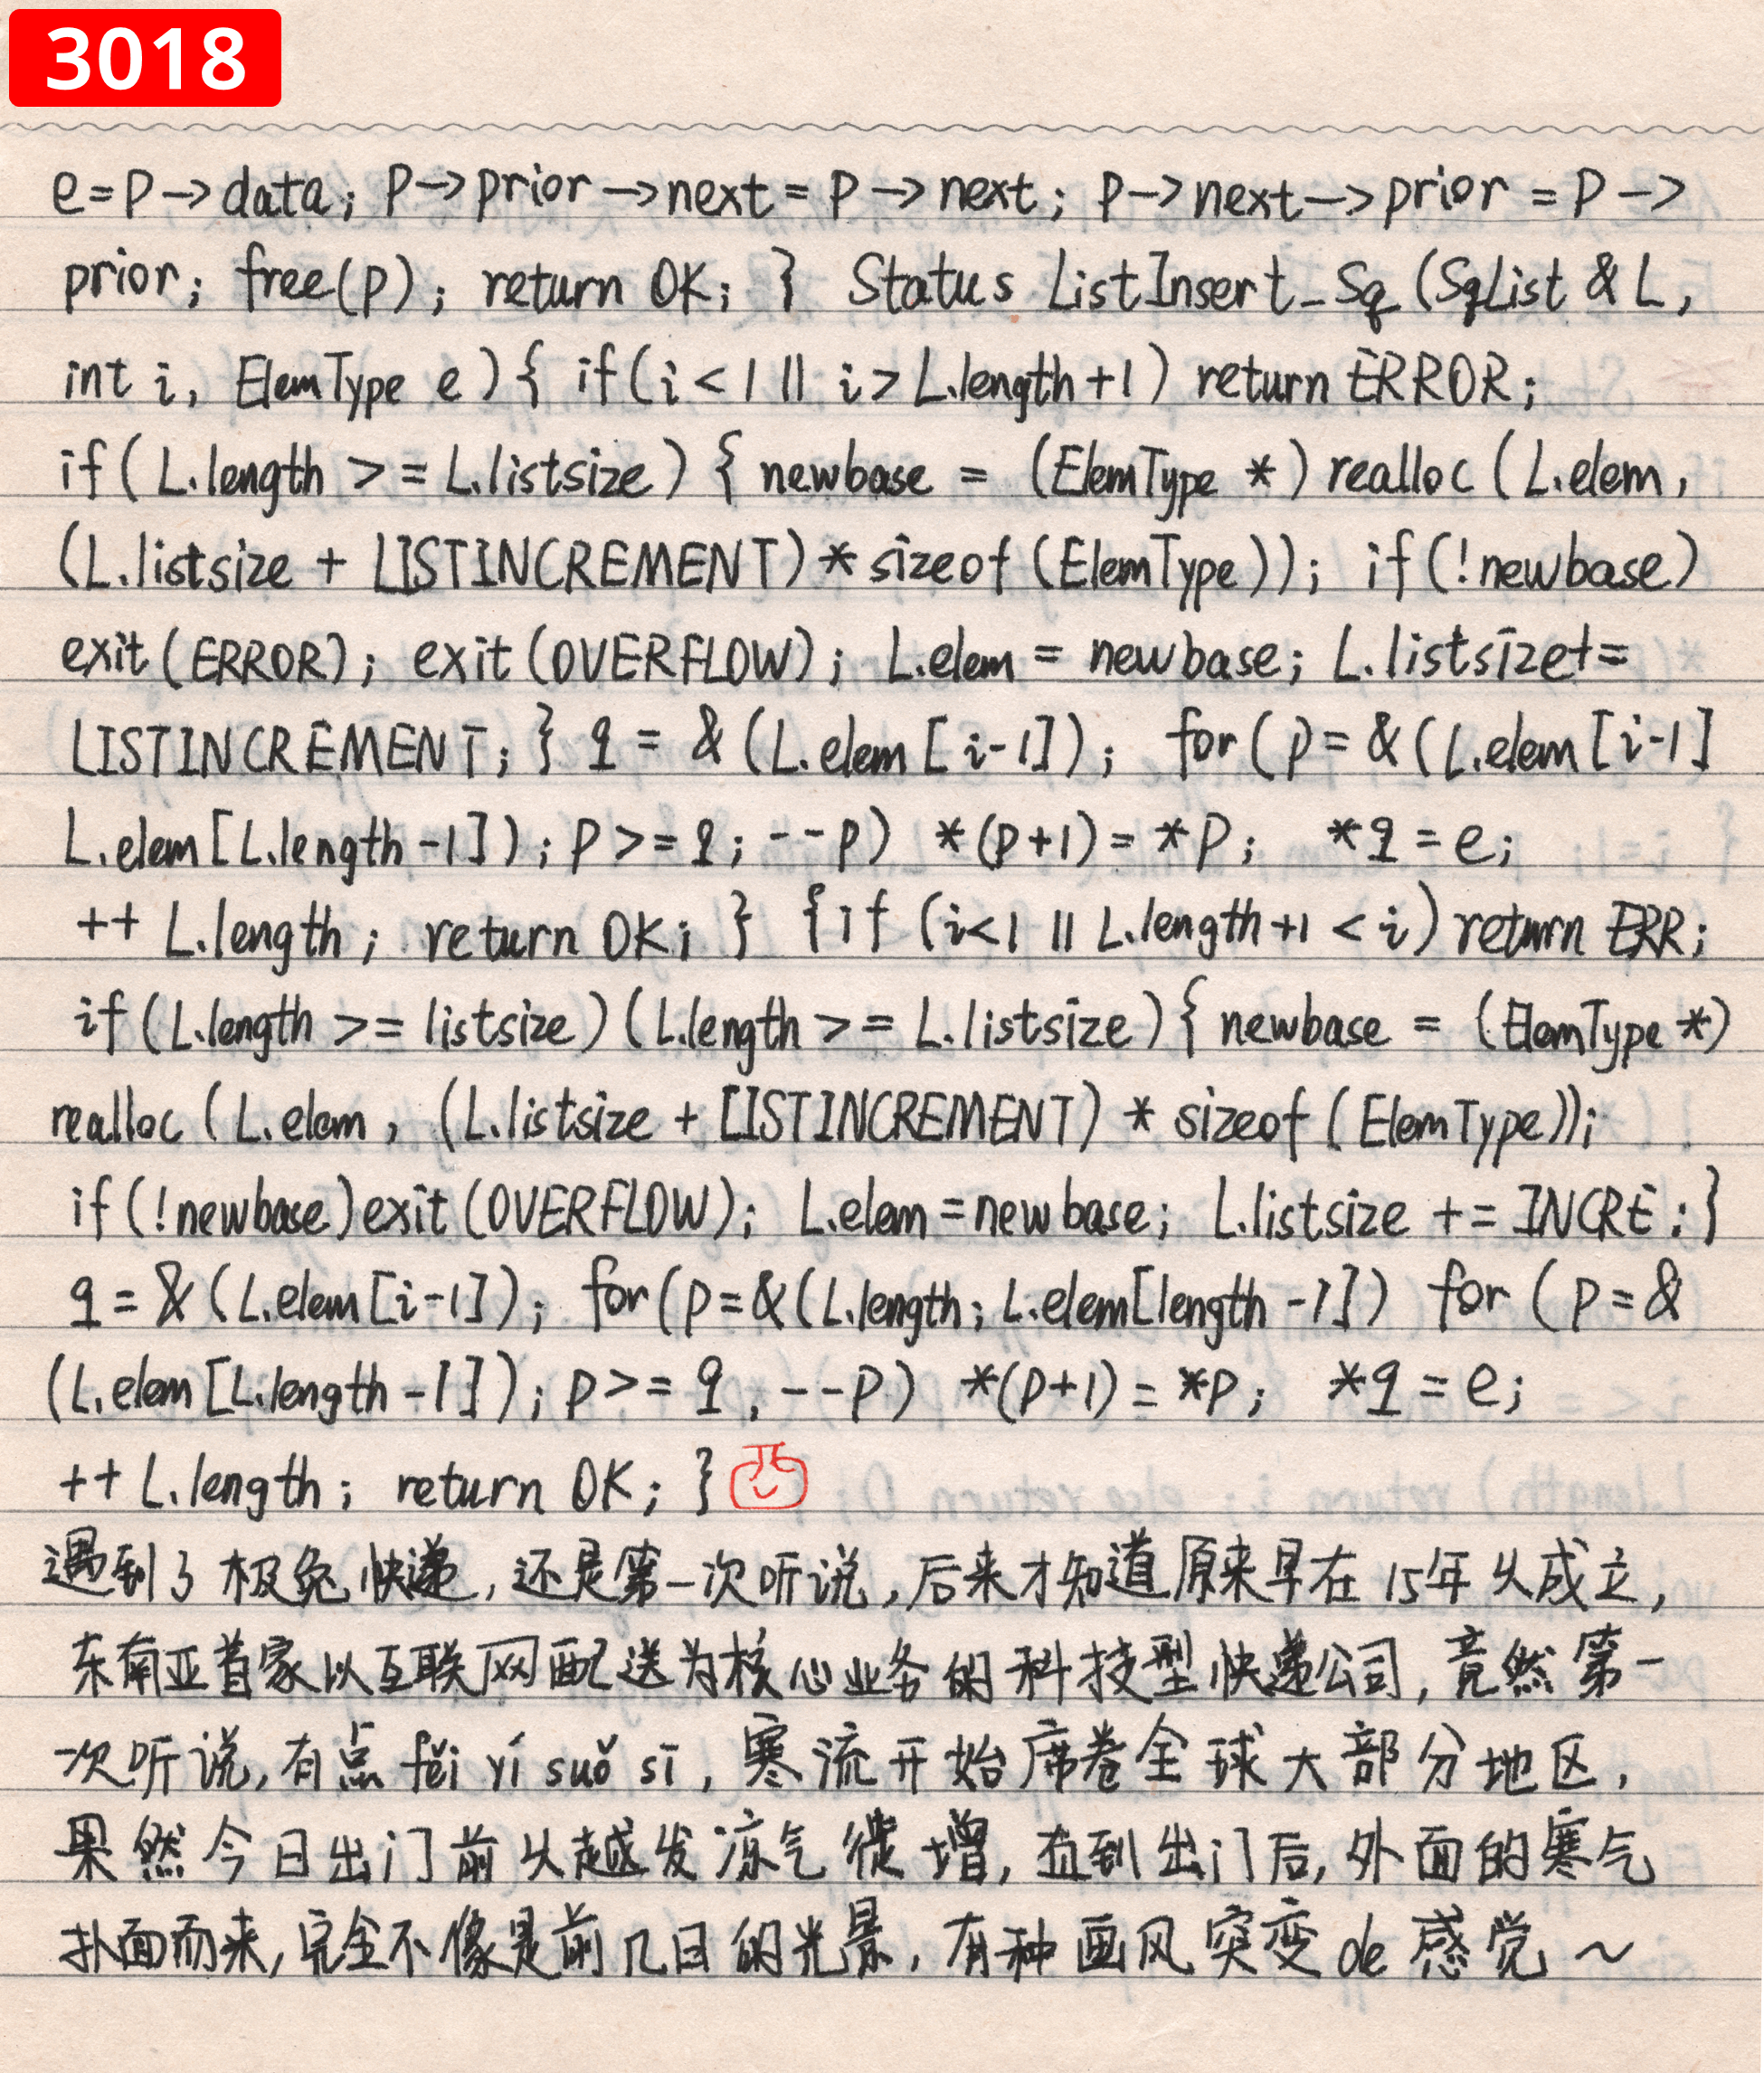 3018
e=P->data; P->prior->next=P->next; P->next->prior=P->
prior; free(p); return OK; } Status ListInsert_Sq (SqList & L,
int i, ElemType e){ if(i<1 || i>L.length+1) return ERROR;
if(L.length >= L.listsize) { newbase = (ElemType *) realloc (L.elem,
(L.listsize + LISTINCREMENT) * sizeof (ElemType)); if(!newbase)
exit(ERROR); exit(OVERFLOW); L.elem = newbase; L.listsize+=
LISTINCREMENT; } q = & (L.elem [i-1]); for(p=&(L.elem[i-1]
L.elem[L.length-1]); P>=q; --p) *(p+1)=*P; *q=e;
++ L.length; return OK; } {if (i<1 || L.length+1 < i) return ERR;
if(L.length >= listsize)(L.length >= L.listsize){ newbase = (ElemType *)
realloc (L.elem, (L.listsize + LISTINCREMENT) * sizeof (ElemType));
if(!newbase)exit(OVERFLOW); L.elem=newbase; L.listsize += INCRE;}
q=&(L.elem[i-1]); for(p=&(L.length; L.elem[length-1]) for (P=&
(L.elem[L.length-1]); P>=q, --P) *(P+1)=*P; *q=e;
++ L.length; return OK; }
遇到了极兔快递,还是第一次听说,后来才知道原来早在15年从成立,
东南亚首家以互联网配送为核心业务的科技型快递公司,竟然第一
次听说,有点fěi yí suǒ sī,寒流开始席卷全球大部分地区,
果然今日出门前从越发凉气徙增,直到出门后,外面的寒气
扑面而来,完全不像是前几日的光景,有种画风突变de感觉~